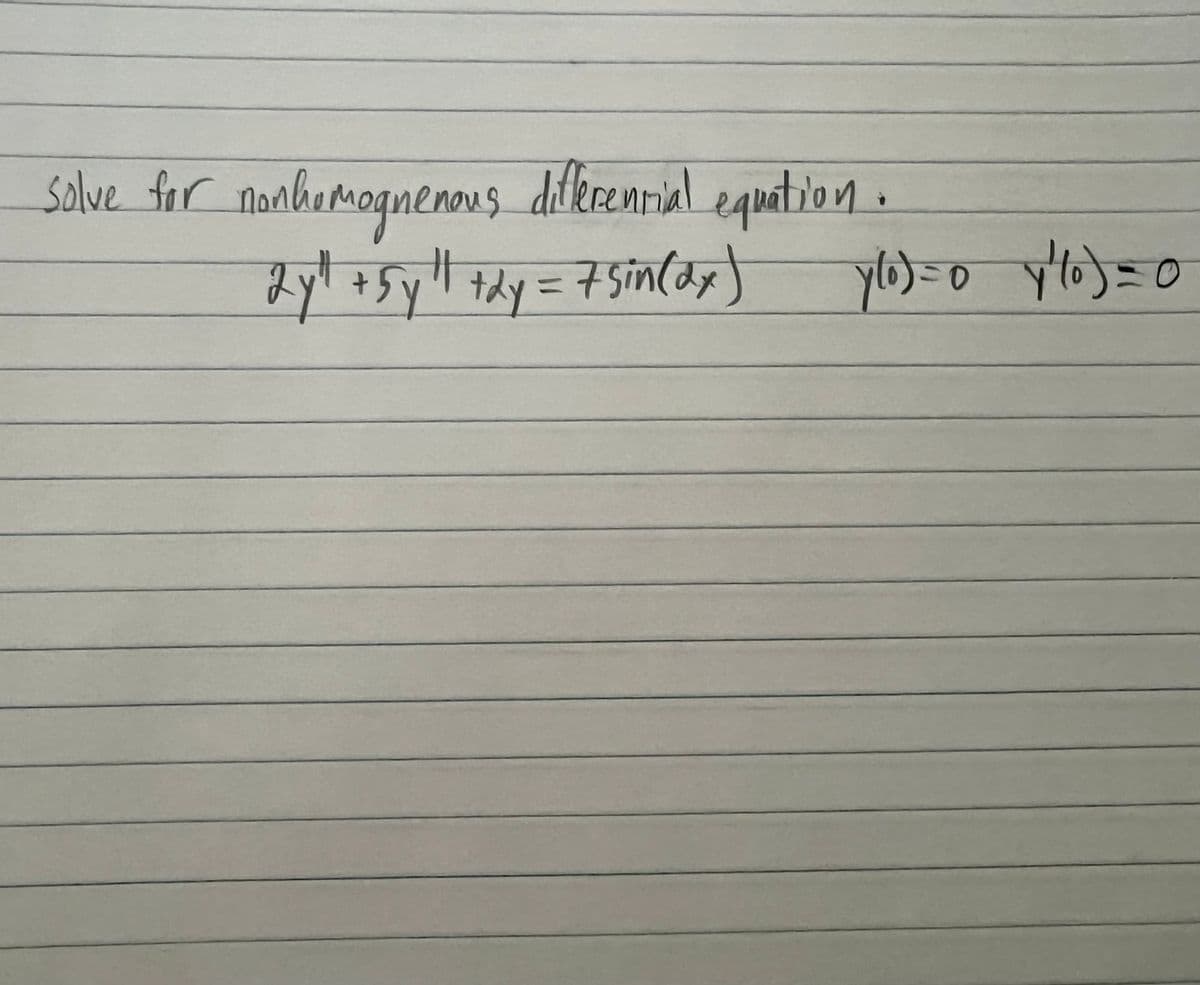 solve for nonhomognenous differenrial equation.
2y'' + 5y'' + 2y = 7sin(2x) y(0)=0 y'(0)=0